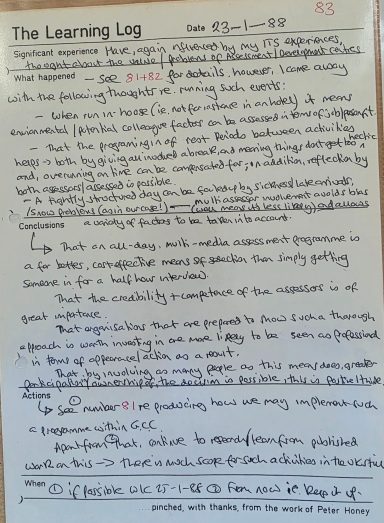 83
The Learning Log Date 23-1-88
Significant experience Have, again influenced by my ITS experiences,
thought about the value / problems of Assessment / Development centres
What happened - See 81+82 for details. however, I came away
with the following thoughts re. running such events:
- When run in-house (ie. not for instance in an hotel) it means
environmental / potential colleague factors can be assessed in terms of job/person fit.
- That the programming in of rest periods between activities
helps → both by giving all involved a break, and meaning things don't get too hectic
and, overrunning on time can be compensated for; in addition, reflection by
both assessors/assessed is possible.
- A tightly structured day can be fouled up by sickness/late arrivals,
/snow problems (again our case!) - multi assessor involvement avoids bias
(well means it's less likely) and allows
Conclusions a variety of factors to be taken into account.
↳ That an all-day, multi-media assessment programme is
a far better, cost-effective means of selection than simply getting
someone in for a half hour interview.
That the credibility + competence of the assessors is of
great importance.
That organisations that are prepared to show such a thorough
approach is worth investing in are more likely to be seen as professional
in terms of appearance/action as a result.
That, by involving as many people as this means does, greater
participation/ownership of the decision is possible, this is positive
Actions
↳ ① See number 81 re producing how we may implement such
a programme within G.C.C.
Apart from that, ② continue to research/learn from published
work on this → there is much scope for such activities in the UK still
When ① if possible w/c 25-1-88 ② from now ie. keep it up.
.... pinched, with thanks, from the work of Peter Honey